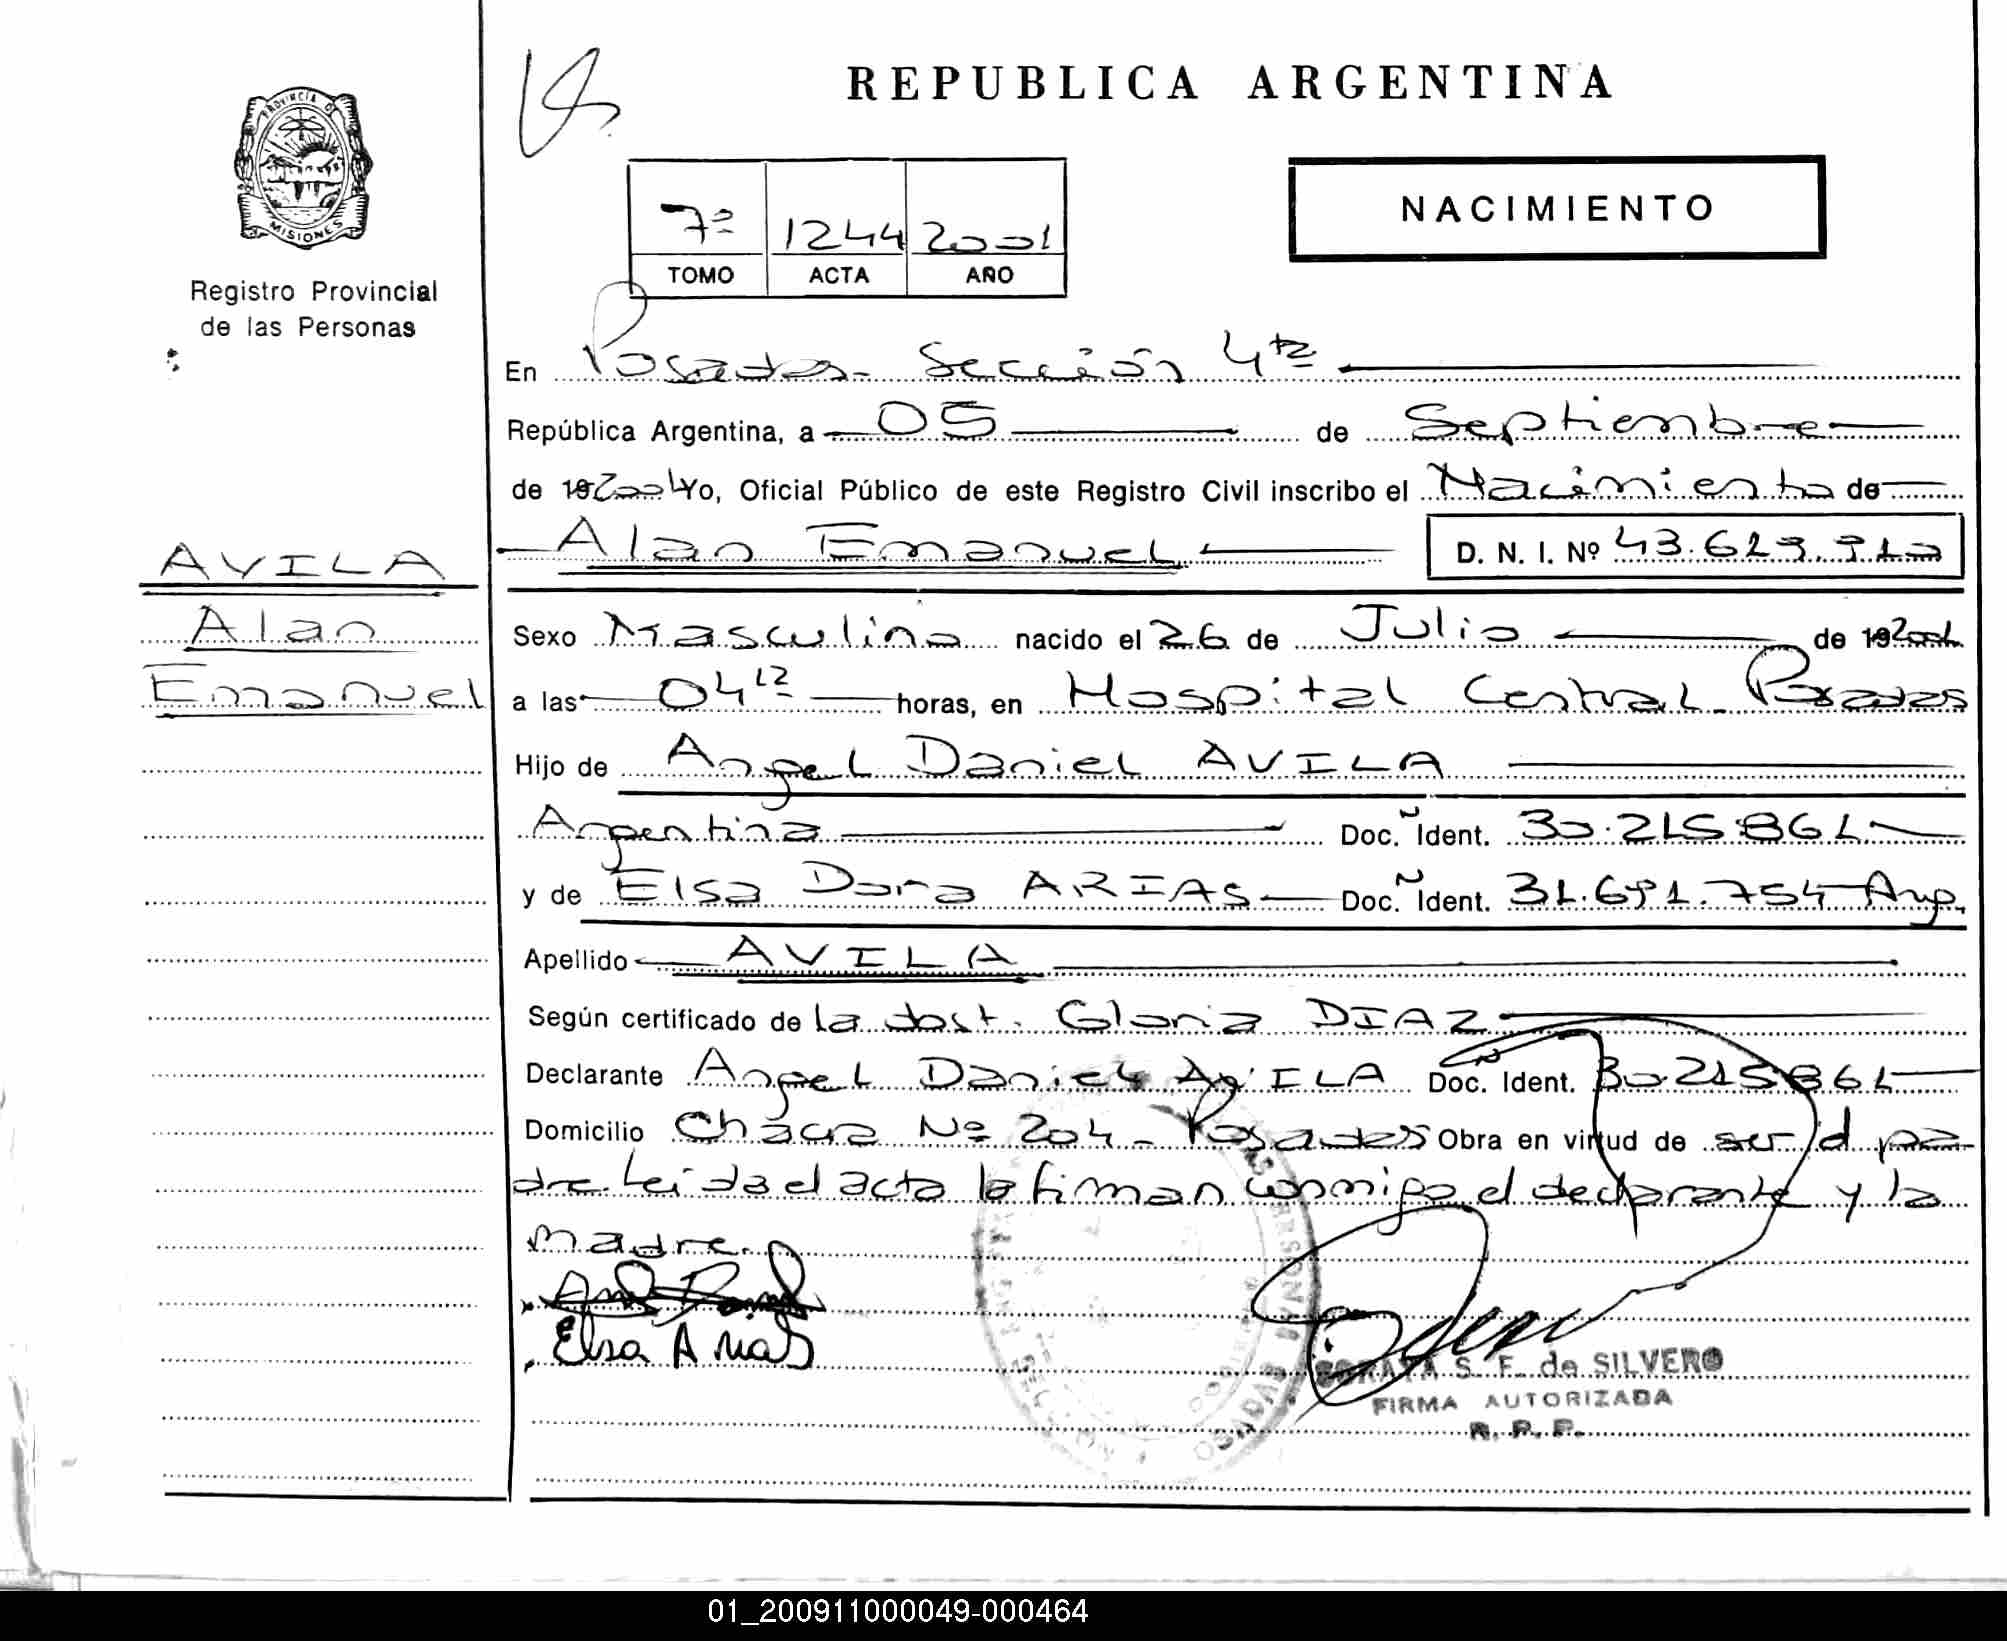 REPUBLICA ARGENTINA
PROVINCIA D
MISIONES
Registro Provincial
de las Personas
7º 1244 2001
TOMO ACTA AÑO
NACIMIENTO
En Posadas - Sección 4ta
República Argentina, a 05 de Septiembre
de 19 2001 Yo, Oficial Público de este Registro Civil inscribo el Nacimiento de
Alan Emanuel D. N. I. Nº 43.629.910
AVILA
Alan
Emanuel
Sexo Masculino nacido el 26 de Julio de 19 2001
a las 04 12 horas, en Hospital Central - Posadas
Hijo de Angel Daniel AVILA
Argentina Doc. Ident. 30.215.861
y de Elsa Dora ARIAS Doc. Ident. 31.691.754 Arg.
Apellido AVILA
Según certificado de la obst. Gloria DIAZ
Declarante Angel Daniel AVILA Doc. Ident. 30.215.861
Domicilio Chacra Nº 204 - Posadas Obra en virtud de ser el pa-
dre. Leida el acta la firman conmigo el declarante y la
madre.
Elsa Arias
S. F. de SILVERO
FIRMA AUTORIZADA
R. P. P.
01_200911000049-000464